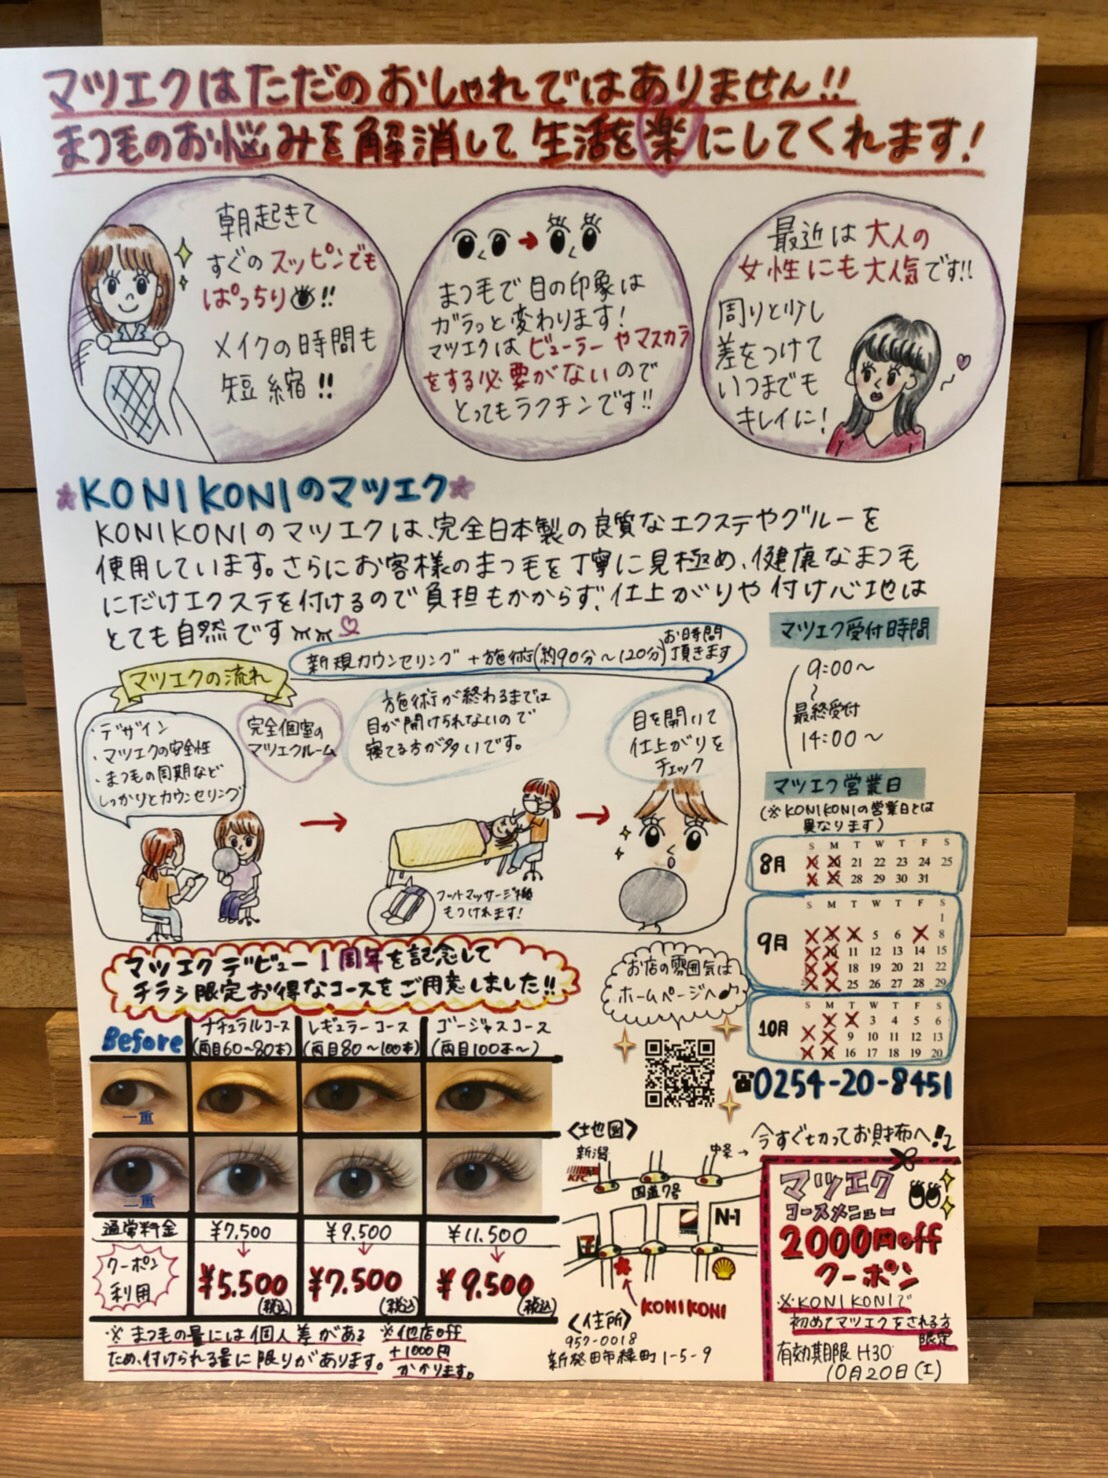 マツエクはただのおしゃれではありません!!
まつ毛のお悩みを解消して生活を楽にしてくれます!
朝起きて
すぐのスッピンでも
ぱっちり!!
メイクの時間も
短縮!!
まつ毛で目の印象は
ガラッと変わります!
マツエクはビューラーやマスカラ
をする必要がないので
とってもラクチンです!!
最近は大人の
女性にも大人気です!!
周りと少し
差をつけて
いつまでも
キレイに!
KONIKONIのマツエク
KONIKONIのマツエクは、完全日本製の良質なエクステやグルーを
使用しています。さらにお客様のまつ毛を丁寧に見極め、健康なまつ毛
にだけエクステを付けるので負担もかからず、仕上がりや付け心地は
とても自然です
新規カウンセリング+施術(約90分~120分)お時間頂きます
マツエクの流れ
・デザイン
・マツエクの安全性
・まつ毛の周期など
しっかりとカウンセリング
完全個室の
マツエクルーム
施術が終わるまでは
目が開けられないので
寝てる方が多いです。
フットマッサージ機
もつけれます!
目を開いて
仕上がりを
チェック
マツエク受付時間
9:00~
~
最終受付
14:00~
マツエク営業日
(※KONIKONIの営業日とは
異なります)
8月
S M T W T F S
21 22 23 24 25
28 29 30 31
9月
S M T W T F S
1
5 6 8
11 12 13 14 15
18 19 20 21 22
25 26 27 28 29
10月
S M T W T F S
3 4 5 6
9 10 11 12 13
16 17 18 19 20
☎0254-20-8451
マツエクデビュー1周年を記念して
チラシ限定お得なコースをご用意しました!!
お店の雰囲気は
ホームページへ♪
Before
ナチュラルコース
(両目60~80本)
レギュラーコース
(両目80~100本)
ゴージャスコース
(両目100本~)
一重
二重
通常料金 ¥7,500 ¥9,500 ¥11,500
クーポン
利用
¥5,500(税込) ¥7,500(税込) ¥9,500(税込)
※まつ毛の量には個人差がある
ため、付けられる量に限りがあります。
※他店off
+1000円
かかります。
<地図>
新潟
中条→
KFC
国道7号
N-1
KONIKONI
<住所>
957-0018
新発田市緑町1-5-9
今すぐ切ってお財布へ!
マツエク
コースメニュー
2000円off
クーポン
※KONIKONIで
初めてマツエクをされる方
限定
有効期限 H30
10月20日(土)